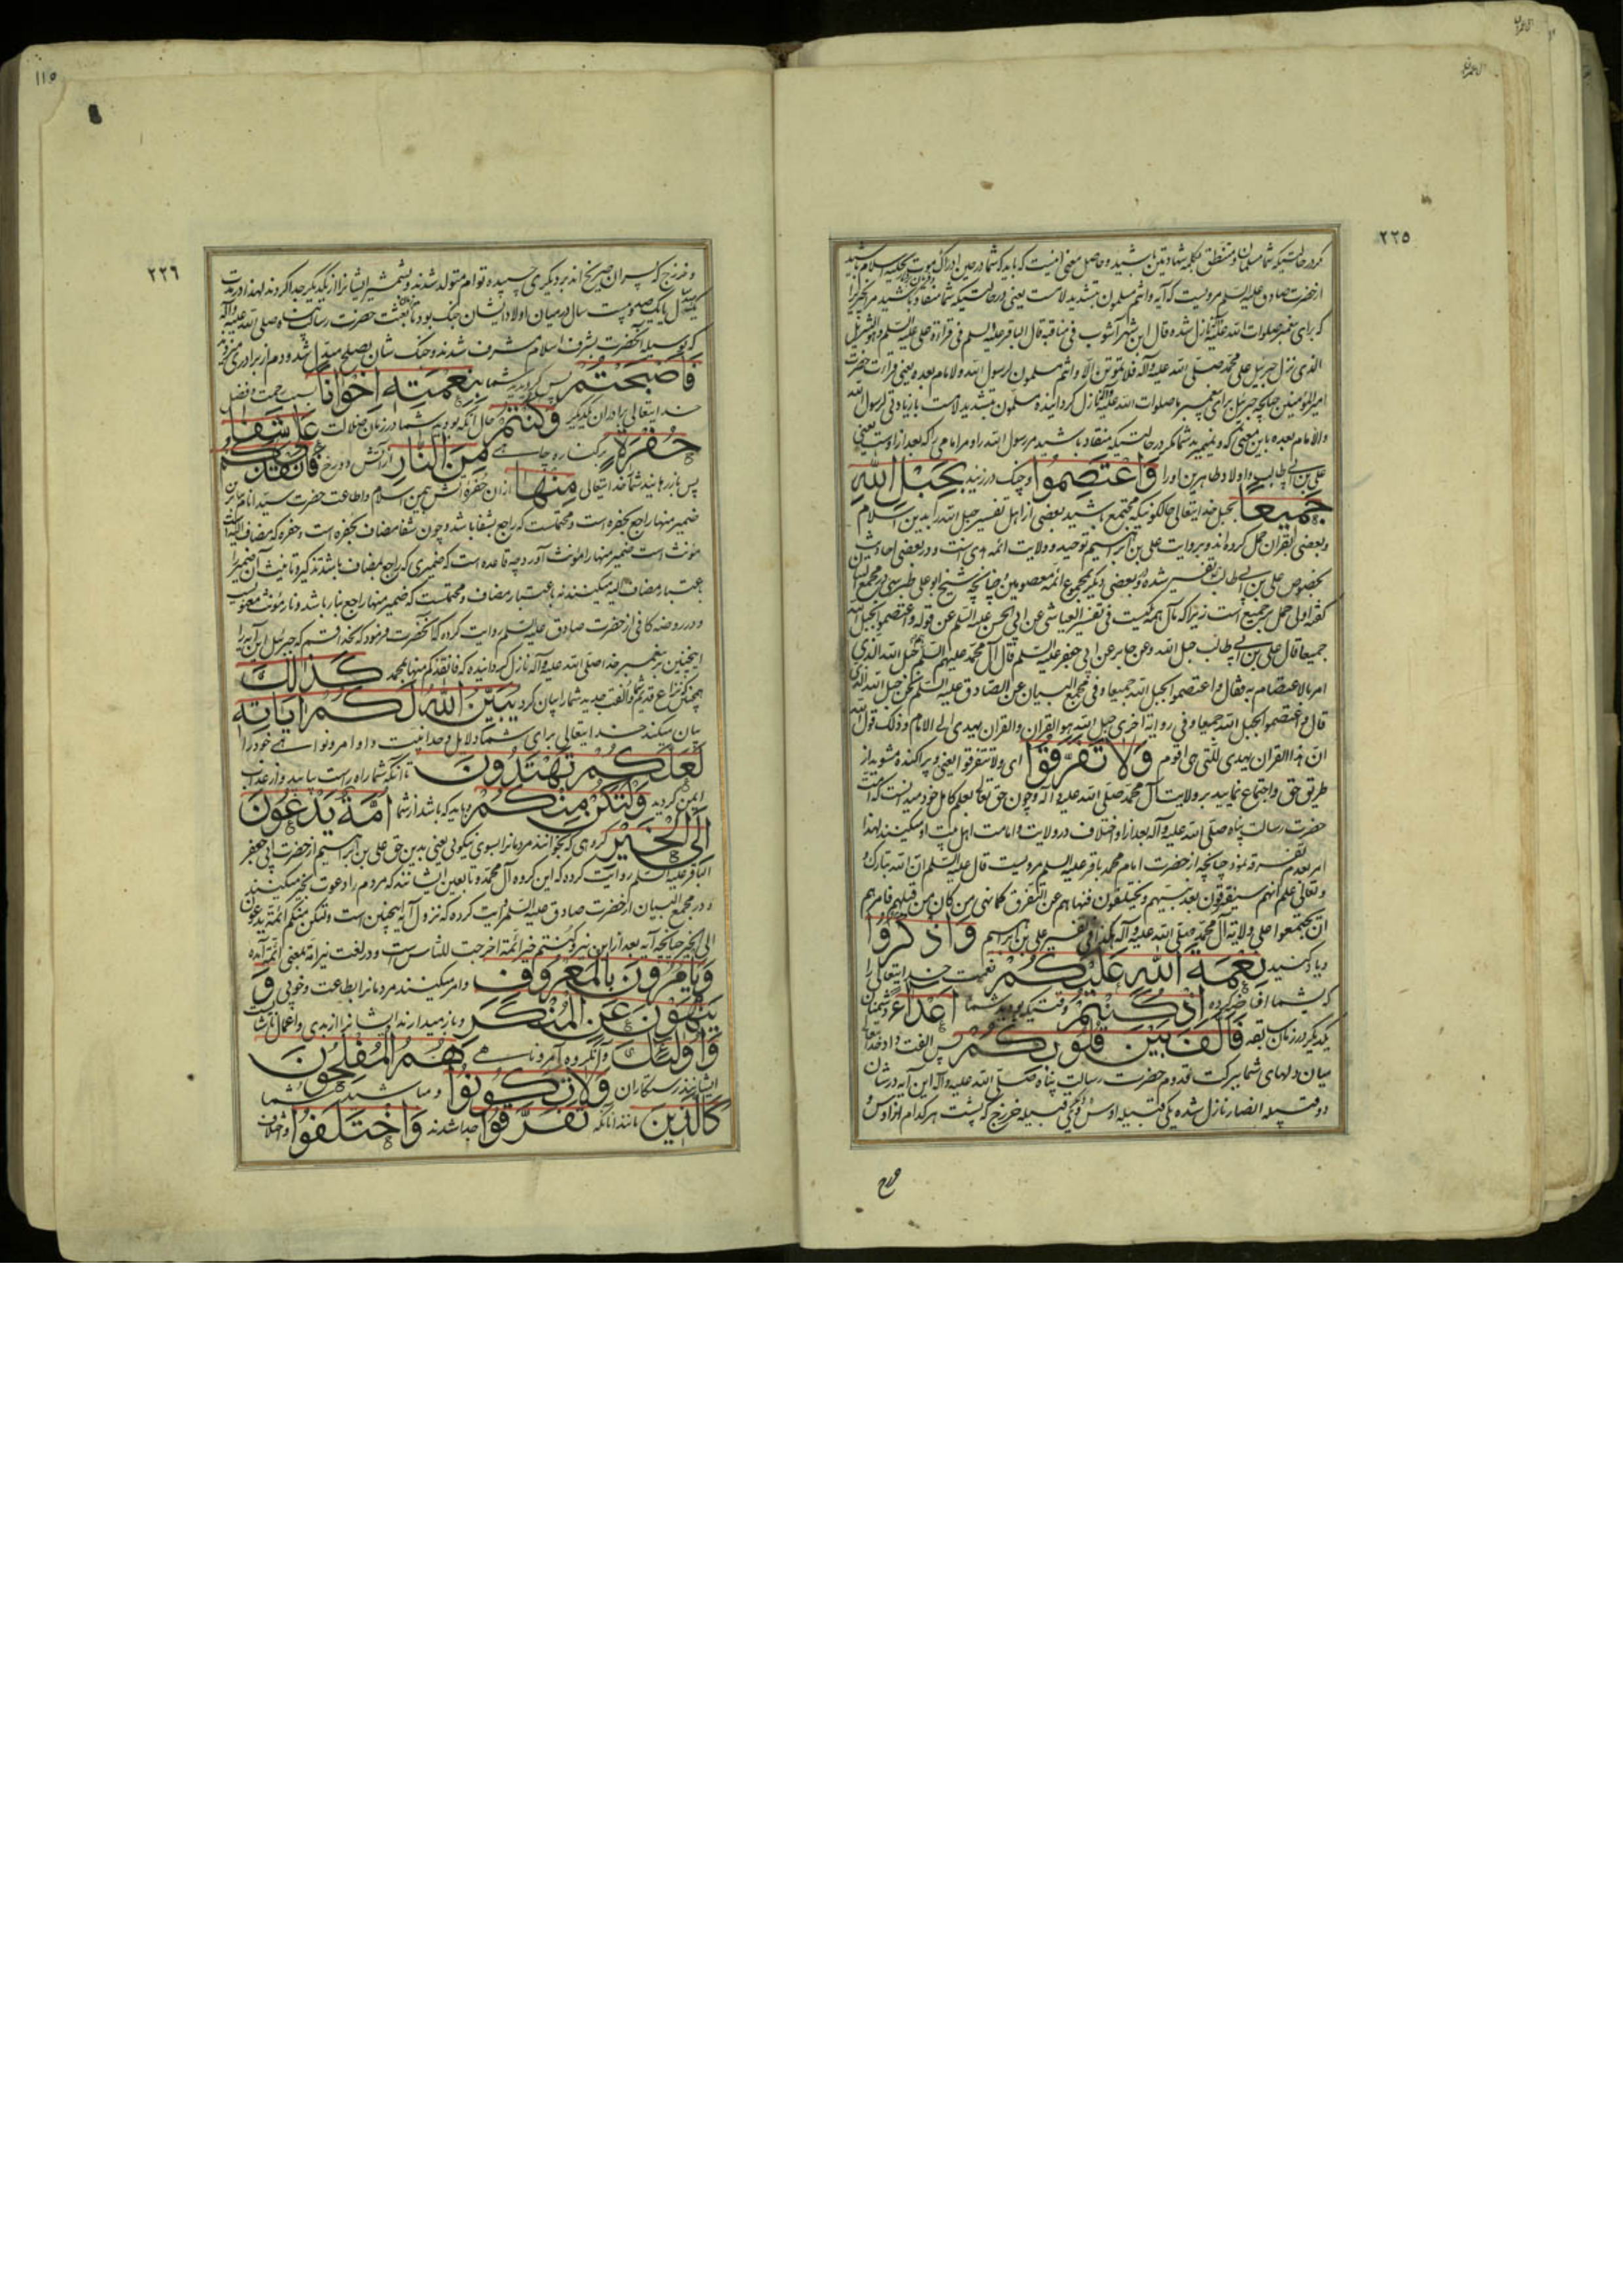 ال عمران
٢٢٥
کر در حالتیکه شما مسلمان و متنطق بکلمه شهادتین باشید و حاصل معنی اینست که باید که شما در حین ادراک موت بکلمه اسلام باشید
از حضرت صادق علیه السلم مرویست که آیه وانتم مسلمون بتشدید لامست یعنی در حالتیکه شما منقاد باشید مر انچیزیرا
که برای پیغمبر صلوات الله علیه نازل شده و قال ابن شهر آشوب فی مناقبه قال الباقر علیه السلم فی قراءة علی علیه السلم و هو التنزیل
الذی نزل جبرئیل علی محمد صلی الله علیه و آله فلا تموتن الا وانتم مسلمون لرسول الله والامام بعده یعنی قراءت حضرت
امیر المؤمنین چنانچه جبرئیل برای پیغمبر ما صلوات الله علیه نازل گردانیده مسلمون بتشدید لامست با زیادتی لرسول الله
والامام بعده باین معنی که و نمیرید شما مگر در حالتیکه منقاد باشید مر رسول الله را و مر امامی را که بعد از اوست یعنی
علی بن ابی طالب و اولاد طاهرین او را وَاعْتَصِمُوا و چنک در زنید بِحَبْلِ اللهِ
جَمِيعًا بحبل خدایتعالی حالکونیکه مجتمع باشید بعضی از اهل تفسیر حبل الله را بدین اسلام
و بعضی بقران حمل کرده اند و بروایت علی بن ابراهیم توحید و ولایت ائمه هدی است و در بعضی احادیث
بخصوص علی بن ابی طالب تفسیر شده و بعضی دیگر بمجموع ائمه معصومین چنانچه شیخ ابو علی طبرسی در مجمع البیان
گفته اولی حمل بر جمیع است زیرا که مآل همه یکیست فی تفسیر العیاشی عن ابی الحسن علیه السلم عن قوله واعتصموا بحبل الله
جمیعا قال علی بن ابی طالب حبل الله و عن جابر عن ابی جعفر علیه السلم قال آل محمد علیهم السلم حبل الله الذی
امر بالاعتصام به فقال واعتصموا بحبل الله جمیعا و فی مجمع البیان عن الصادق علیه السلم نحن حبل الله الذی
قال واعتصموا بحبل الله جمیعا و فی روایة اخری حبل الله هو القران والقران یهدی الی الامام و ذلک قول الله
ان هذا القران یهدی للتی هی اقوم وَلَا تَفَرَّقُوا ای ولا تتفرقوا یعنی و پراکنده مشوید از
طریق حق و اجتماع نمایید بر ولایت آل محمد صلی الله علیه و آله و چون حق تعالی بعلم کامل خود میدانست که امت
حضرت رسالت پناه صلی الله علیه و آله بعد از او اختلاف در ولایت و امامت اهل بیت او میکنند لهذا
امر بعدم تفرقه نمود چنانچه از حضرت امام محمد باقر علیه السلم مرویست قال علیه السلم ان الله تبارک
و تعالی علم انهم سیفترقون بعد نبیهم و یختلفون فنهاهم عن التفرق کما نهی من کان من قبلهم فامرهم
ان یجتمعوا علی ولایة آل محمد صلی الله علیه و آله هکذا فی تفسیر علی بن ابراهیم وَاذْكُرُوا
و یاد کنید نِعْمَةَ اللهِ عَلَيْكُمْ نعمت خدایتعالی را
که بشما افاضه کرده اِذْ كُنْتُمْ وقتیکه بودید شما اَعْدَاءً دشمنان
یکدیگر در زمان سابقه فَاَلَّفَ بَيْنَ قُلُوبِكُمْ پس الفت داد خدایتعالی
میان دلهای شما ببرکت قدوم حضرت رسالت پناه صلی الله علیه و آله این آیه در شان
دو قبیله انصار نازل شده یکی قبیله اوس و یکی قبیله خزرج که پشت هر کدام از اوس و
١١٥
٢٢٦
و خزرج که پسران بر دیگری چسپیده توام متولد شدند بشمشیر ایشانرا از یکدیگر جدا کردند لهذا در مدت
یکصد و بیست سال در میان اولاد ایشان جنک بود تا بعثت حضرت رسالت پناه صلی الله علیه و آله
که بوسیله آنحضرت بشرف اسلام مشرف شدند و جنک شان بصلح مبدل شد و دم از برادری میزدند
فَاَصْبَحْتُمْ پس گردیدید شما بِنِعْمَتِهِ اِخْوَانًا بسبب رحمت و فضل
خدایتعالی برادران یکدیگر وَكُنْتُمْ حال آنکه بودید شما در زمان ضلالت عَلَى شَفَا
حُفْرَةٍ بر کناره چاهی مِنَ النَّارِ از آتش دوزخ فَاَنْقَذَكُمْ
پس باز رهانید شما را خدایتعالی مِنْهَا از ان حفره آتش بدین اسلام و اطاعت حضرت سید انام
ضمیر منها راجع بحفره است و محتملست که راجع بشفا باشد و چون شفا مضاف بحفره است و حفره که مضاف الیه است
مؤنث است ضمیر منها را مؤنث آورد چه قاعده است که ضمیری که راجع بمضاف باشد تذکیر و تانیث آن ضمیر را
باعتبار مضاف الیه میکنند نه باعتبار مضاف و محتملست که ضمیر منها راجع بنار باشد و نار مؤنث معنویست
و در روضه کافی از حضرت صادق علیه السلم روایت کرده که آنحضرت فرمود که بخدا قسم که جبرئیل این آیه را
اینچنین بر پیغمبر خدا صلی الله علیه و آله نازل گردانیده که فانقذکم منها بمحمد كَذَالِكَ
همچنانکه نزاع قدیم شما و الفت جدید شما را بیان کرد يُبَيِّنُ اللهُ لَكُمْ اٰيَاتِهِ
بیان میکند خدایتعالی برای شما دلایل وحدانیت و اوامر و نواهی خود را
لَعَلَّكُمْ تَهْتَدُونَ تا آنکه شما راه راست بیابید و از عذاب
ایمن گردید وَلْتَكُنْ مِنْكُمْ و باید که باشد از شما اُمَّةٌ يَدْعُونَ
اِلَى الْخَيْرِ گروهی که بخوانند مردمانرا بسوی نیکویی یعنی بدین حق علی بن ابراهیم از حضرت ابی جعفر
الباقر علیه السلم روایت کرده که این گروه آل محمد و تابعین ایشانند که مردم را دعوت بخیر میکنند
و در مجمع البیان از حضرت صادق علیه السلم روایت کرده که نزول آیه اینچنین است ولتکن منکم ائمة یدعون
الی الخیر چنانچه آیه بعد از این نیز کنتم خیر ائمة اخرجت للناس است و در لغت نیز امة بمعنی ائمه آمده
وَيَأْمُرُونَ بِالْمَعْرُوفِ و امر میکنند مردمانرا بطاعت و خوبی وَ
يَنْهَوْنَ عَنِ الْمُنْكَرِ و باز میدارند ایشانرا از بدی و اعمال ناشایست
وَاُولٰئِكَ و آنگروه آمر و ناهی هُمُ الْمُفْلِحُونَ
ایشانند رستگاران وَلَا تَكُونُوا و مباشید شما
كَالَّذِينَ مانند آنانکه تَفَرَّقُوا جدا شدند وَاخْتَلَفُوا و اختلاف